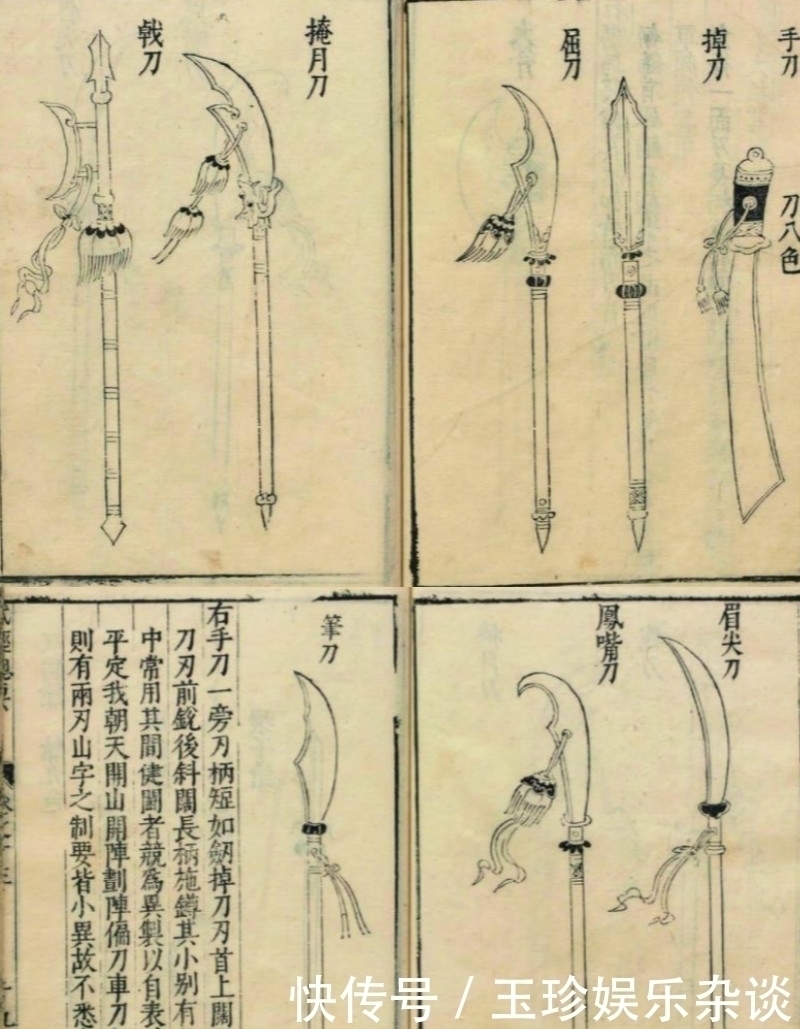 手刀
刀八色
掉刀
屈刀
掩月刀
戟刀
眉尖刀
鳳嘴刀
筆刀
右手刀一旁刃柄短如劒掉刀刃首上闊
刀刃前銳後斜闊長柄施鐏其小别有
中常用其間健鬬者競爲異製以自表
平定我朝天開山開陣劃陣偏刀車刀
則有兩刃山字之制要皆小異故不悉
快传号 / 玉珍娱乐杂谈